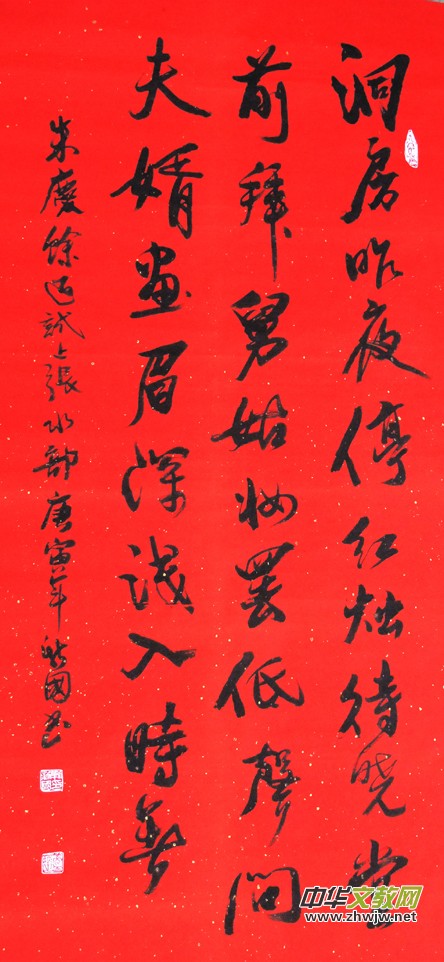 洞房昨夜停红烛待晓堂
前拜舅姑妆罢低声问
夫婿画眉深浅入时无
朱庆馀近试上张水部庚寅年 国书
中华文教网
www.zhwjw.net